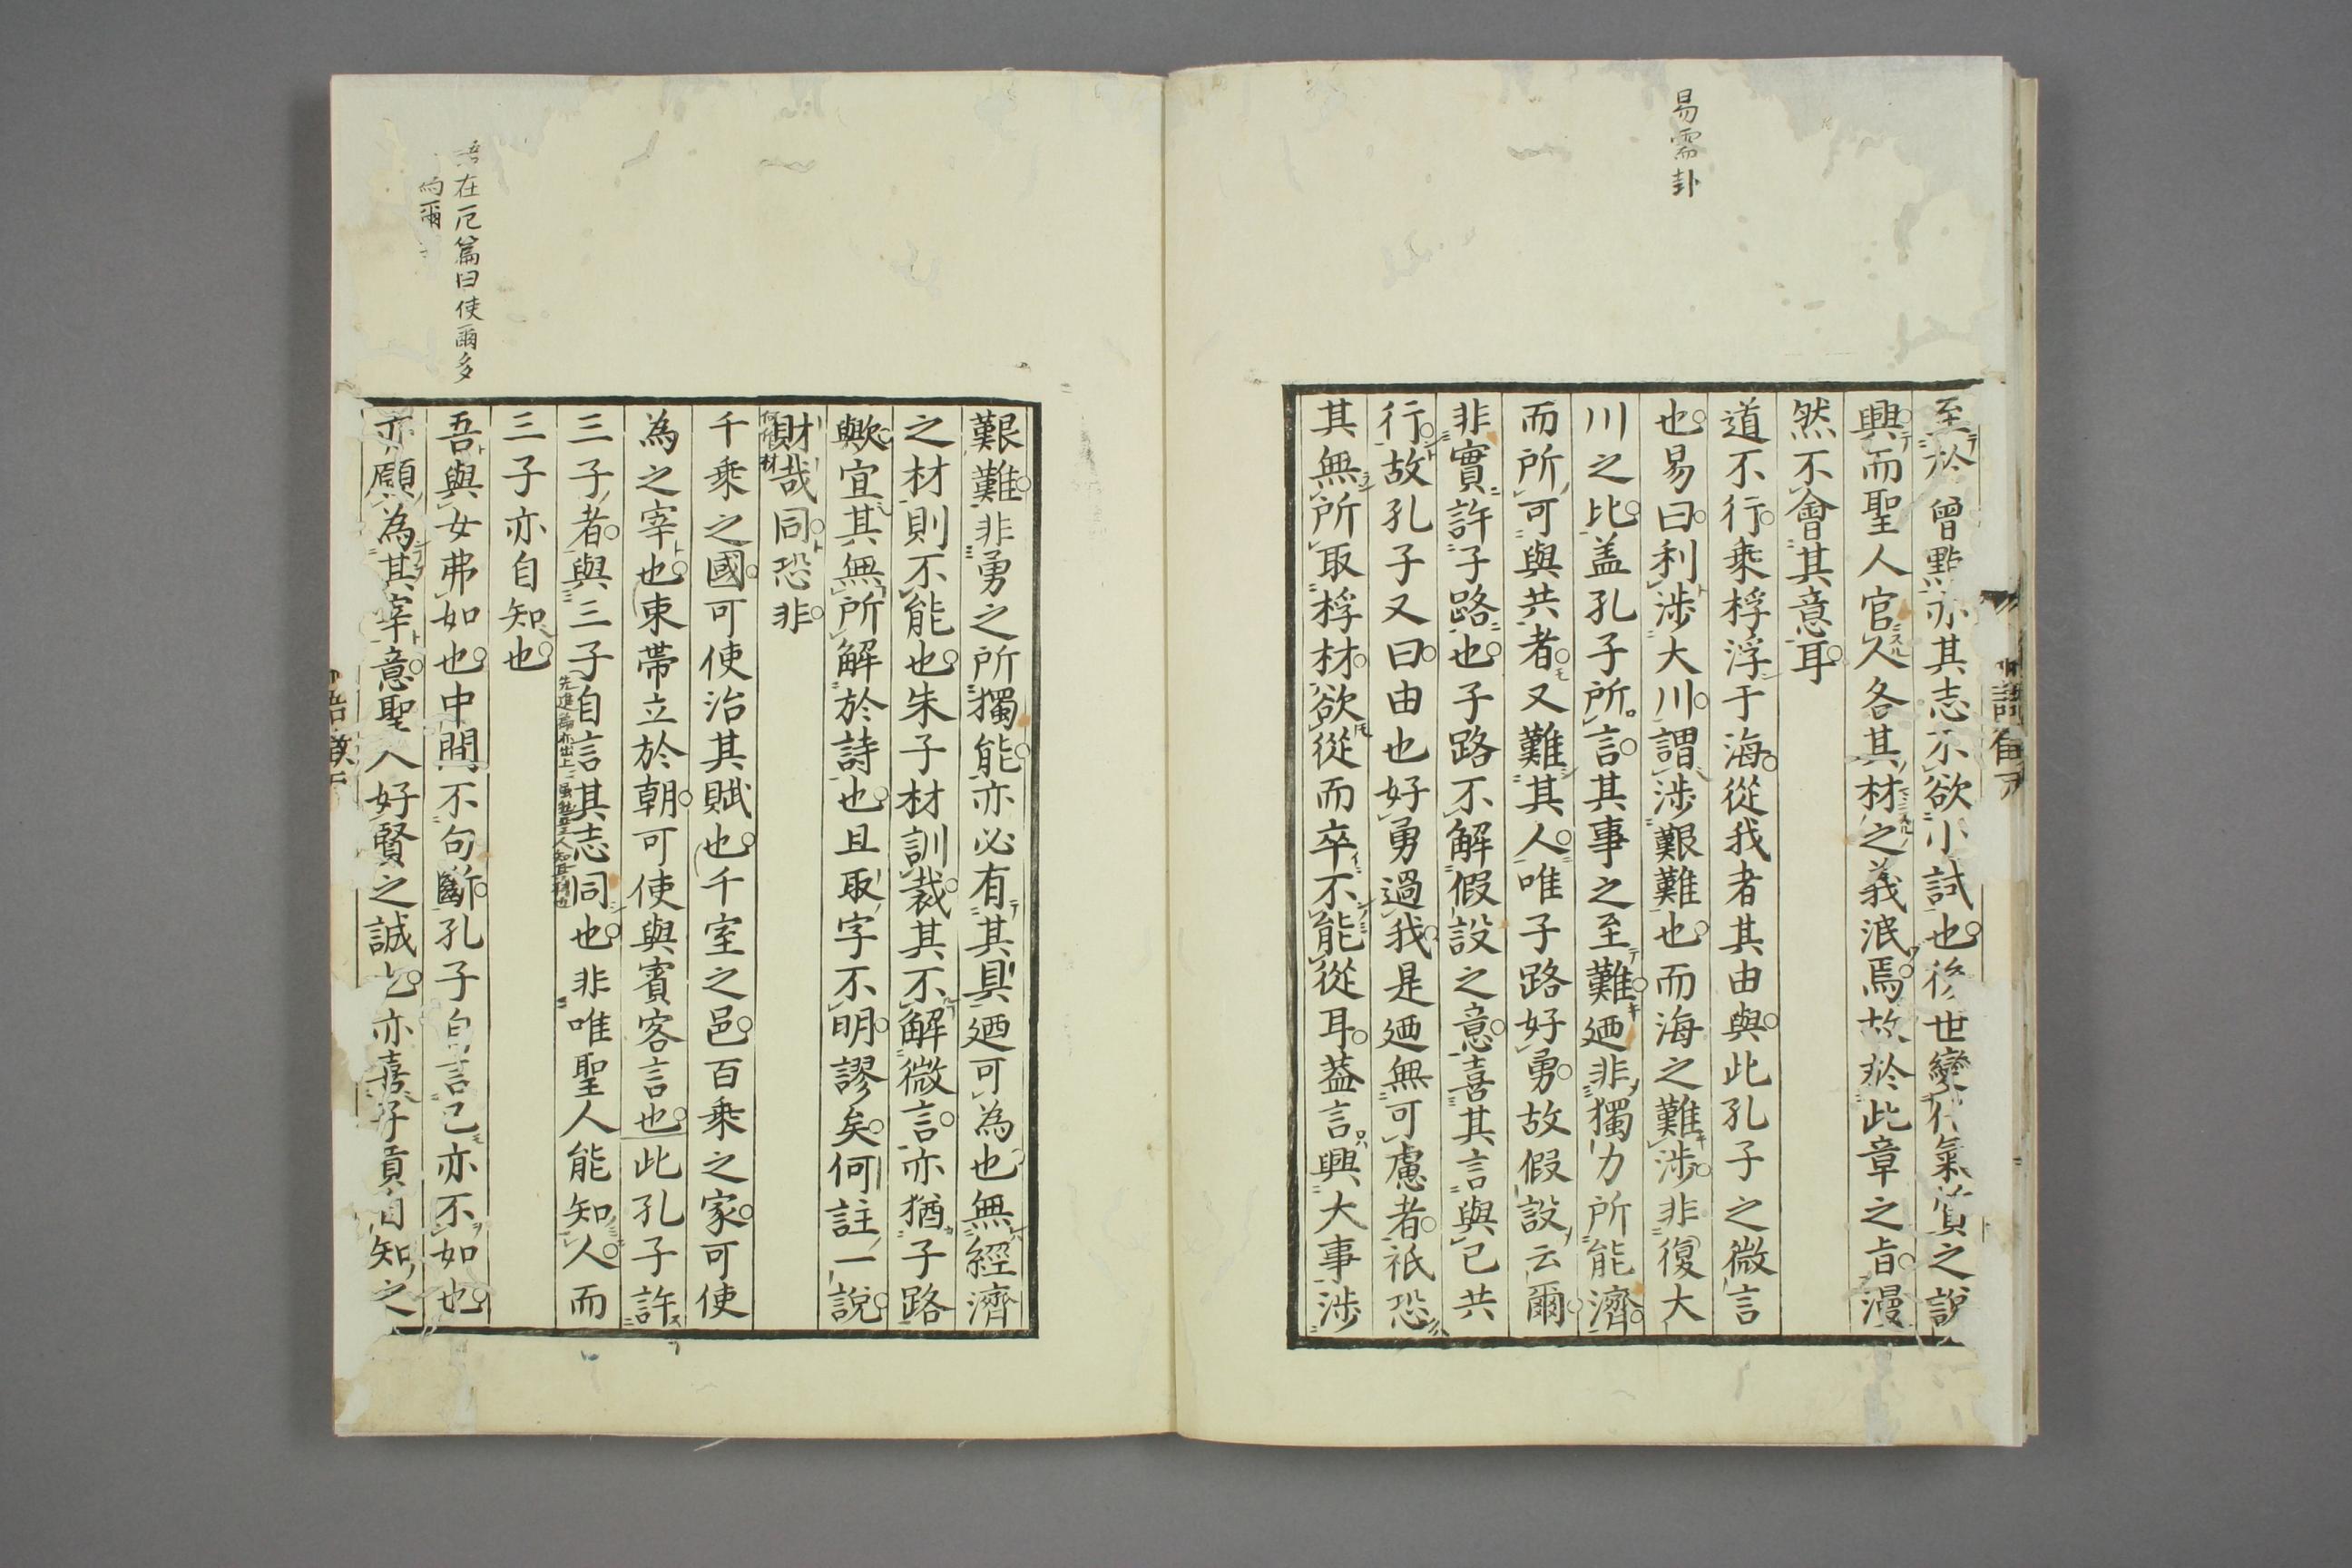 易需卦
至於曾點亦其志不欲小試也後世變化氣質之說
興而聖人官人各其材之義泯焉故於此章之旨漫
然不會其意耳
道不行乘桴浮于海從我者其由與此孔子之微言
也易曰利涉大川謂涉艱難也而海之難涉非復大
川之比盖孔子所言其事之至難廼非獨力所能濟
而所可與共者又難其人唯子路好勇故假設云爾
非實許子路也子路不解假設之意喜其言與己共
行故孔子又曰由也好勇過我是廼無可慮者祇恐
其無所取桴材欲從而卒不能從耳葢言興大事涉
在厄篇曰使爾多
艱難非勇之所獨能亦必有其具廼可為也無經濟
之材則不能也朱子材訓裁其不解微言亦猶子路
歟宜其無所解於詩也且取字不明謬矣何註一說
財哉同恐非
千乘之國可使治其賦也千室之邑百乘之家可使
為之宰也束帶立於朝可使與賓客言也此孔子許
三子者與三子自言其志同也非唯聖人能知人而
三子亦自知也
吾與女弗如也中間不句斷孔子自言己亦不如也
亦願為其宰意聖人好賢之誠也亦喜子貢自知之